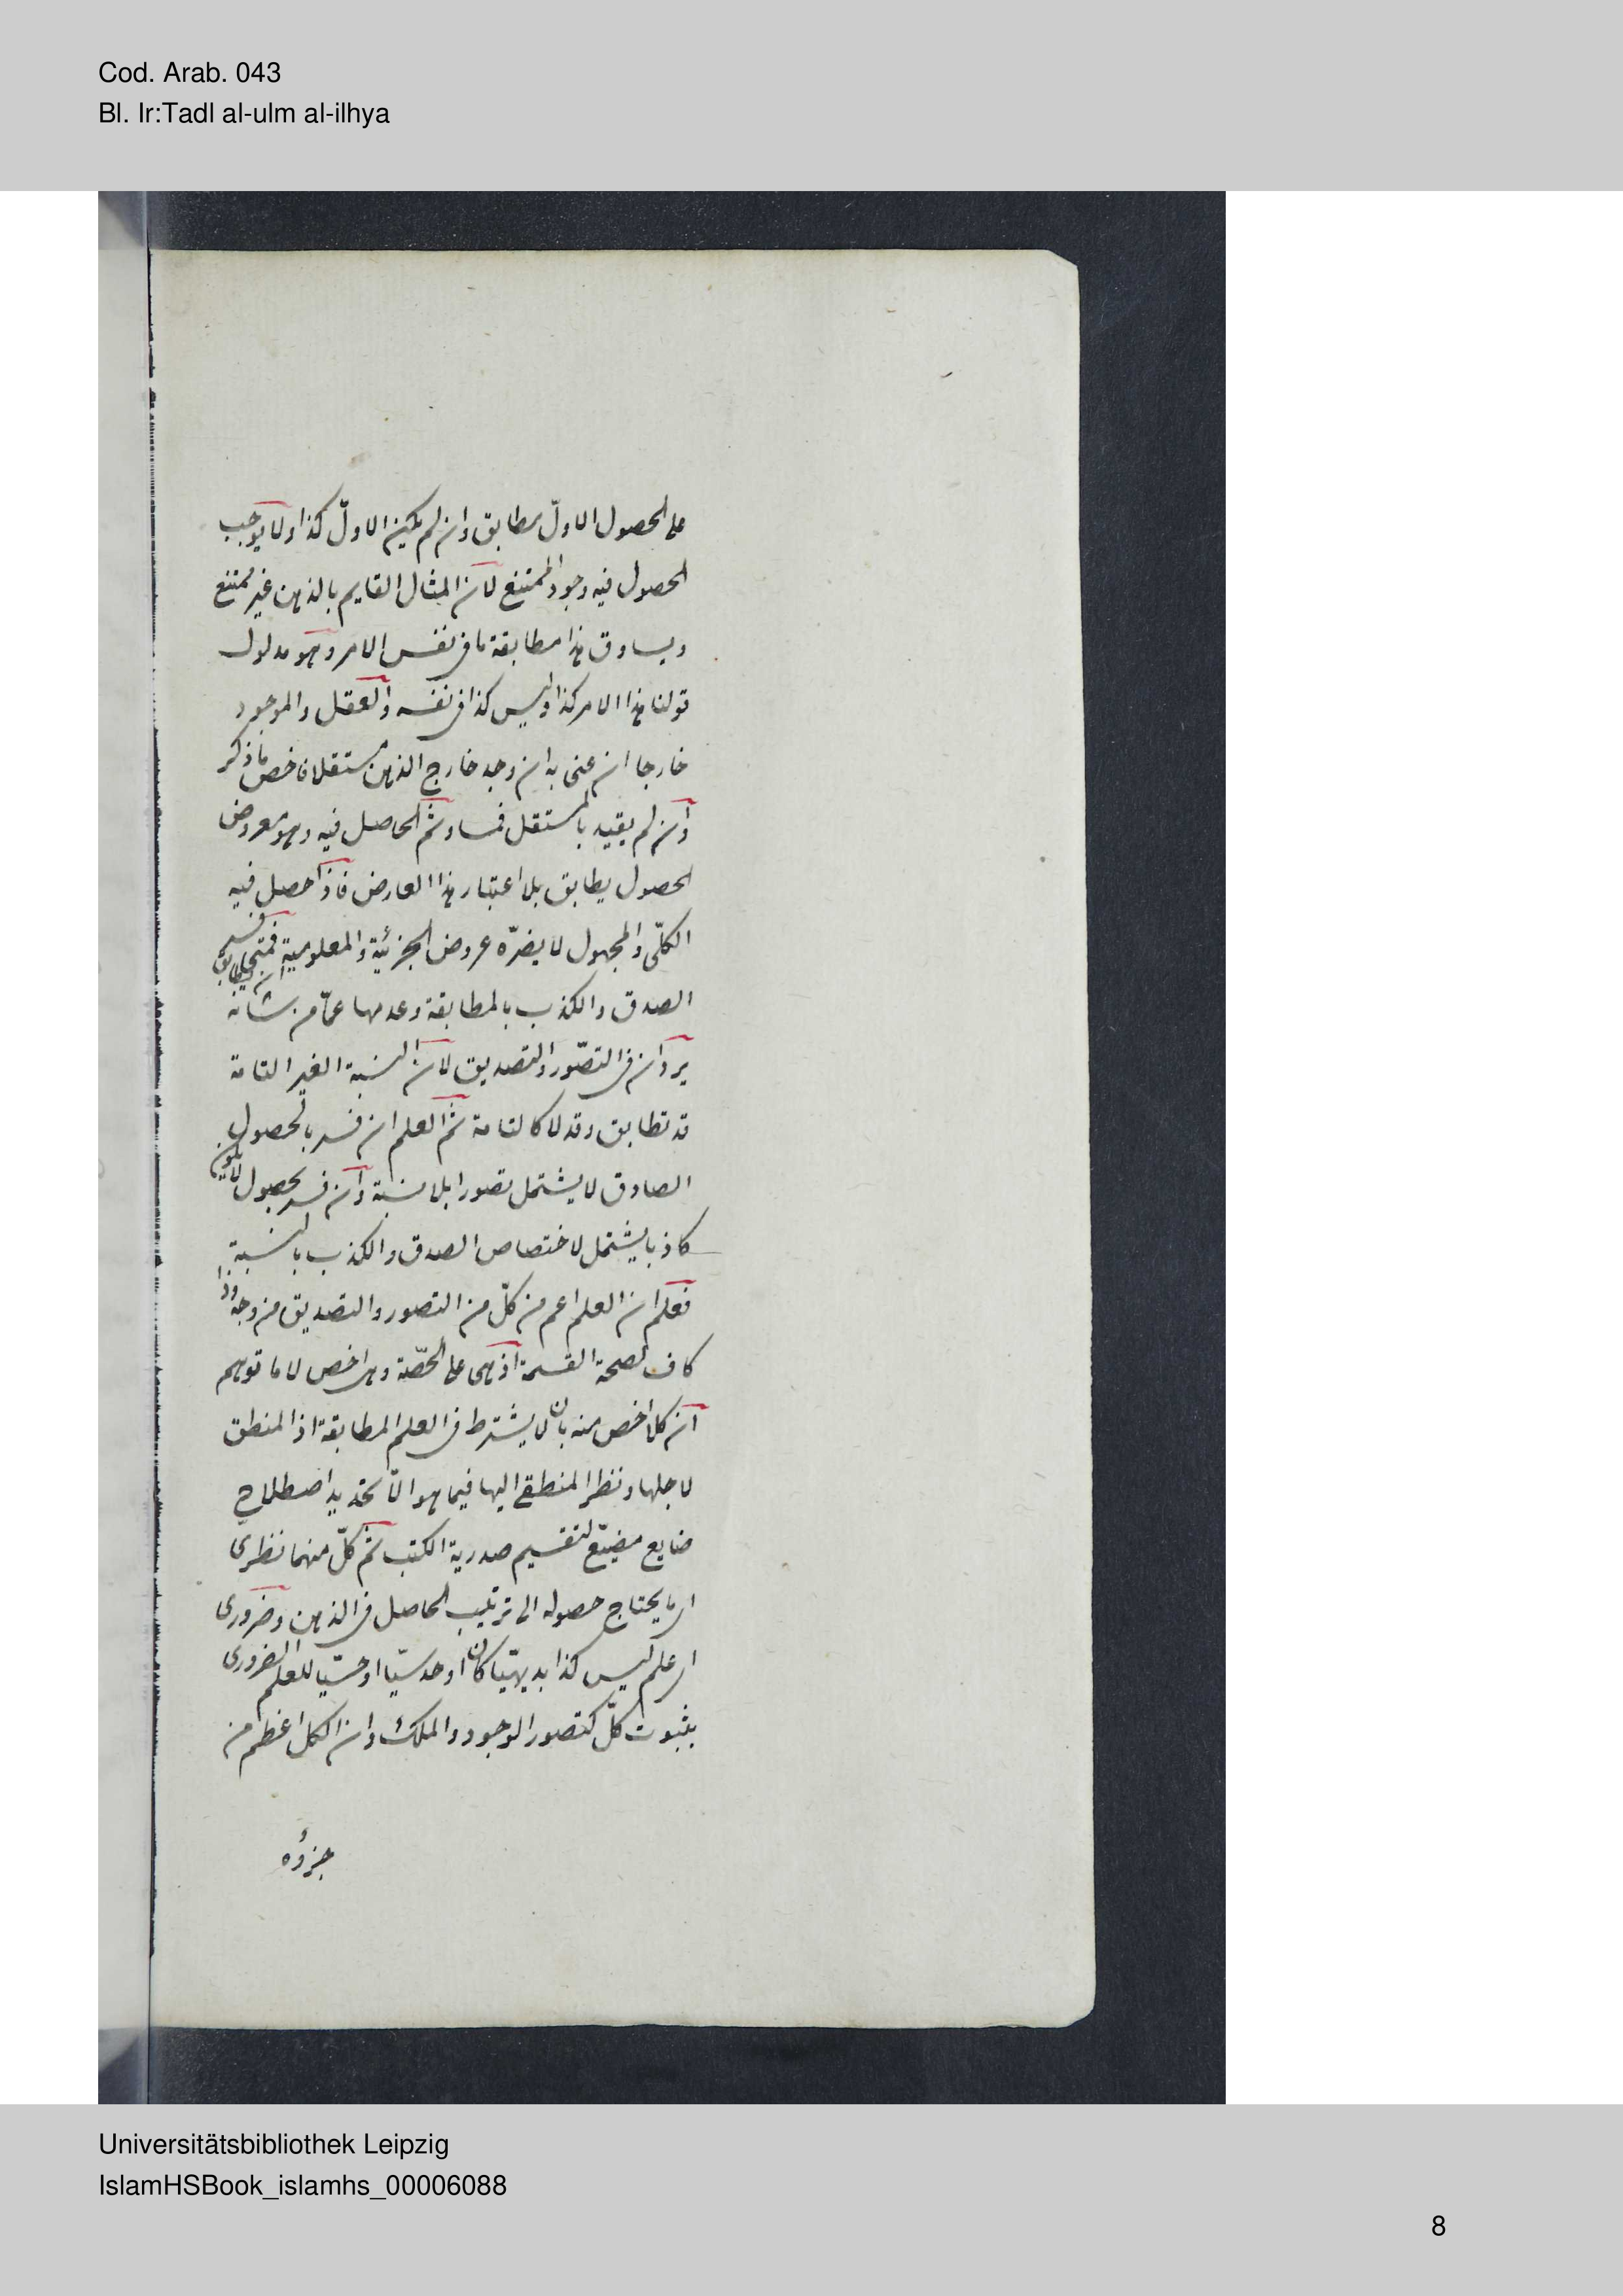 Cod. Arab. 043
Bl. Ir:Tadl al-ulm al-ilhya
على الحصول الاول مطابق وان لم يكن الاول كذا ولا يوجب
الحصول فيه وجود الممتنع لان المثال القايم بالذهن غير ممتنع
ويساوق هذا مطابقة ما فى نفس الامر وهو مدلول
قولنا هذا الامر كذا وليس كذا فى نفسه والعقل والموجود
خارجا ان عنى به ان وجد خارج الذهن مستقلا فاخص ما ذكر
وان لم يقيد بالمستقل فمساو ثم الحاصل فيه وهو معروض
الحصول يطابق بلا اعتبار هذا العارض فاذا حصل فيه
الكلّى والمجهول لا يضرّه عروض الجزئية والمعلومية فمتى فسر
الصدق والكذب بالمطابقة وعدمها عمّا من شانه ان يطابق
يردان فى التصّور والتصديق لان النسبة الغير التامة
قد تطابق وقد لا كالتامة ثم العلم ان فسر بالحصول
الصادق لا يشتمل تصورا بلا نسبة وان فسر بحصول لا يكون
كاذبا يشتمل لاختصاص الصدق والكذب بالنسبة
فعلم ان العلم اعم من كلّ من التصور والتصديق من وجه وذا
كاف لصحة القسمة اذ هى على الحصّة وهى اخص لا ما توهم
ان كلا اخص منه بان لا يشترط فى العلم المطابقة اذ المنطق
لاجلها ونظر المنطقى اليها فيما هو الّا تحديد اصطلاح
ضايع مضيّع لتقسيم صدرية الكتب ثم كلّ منهما نظرى
اى ما يحتاج حصوله الى ترتيب الحاصل فى الذهن وضرورى
اى علم ليس كذا بديهيّا كان او حدسيّا او حسّيا للعلم الضرورى
بثبوت كلّ كتصور الوجود والملك وان الكل اعظم من
جزؤه
Universitätsbibliothek Leipzig
IslamHSBook_islamhs_00006088
8